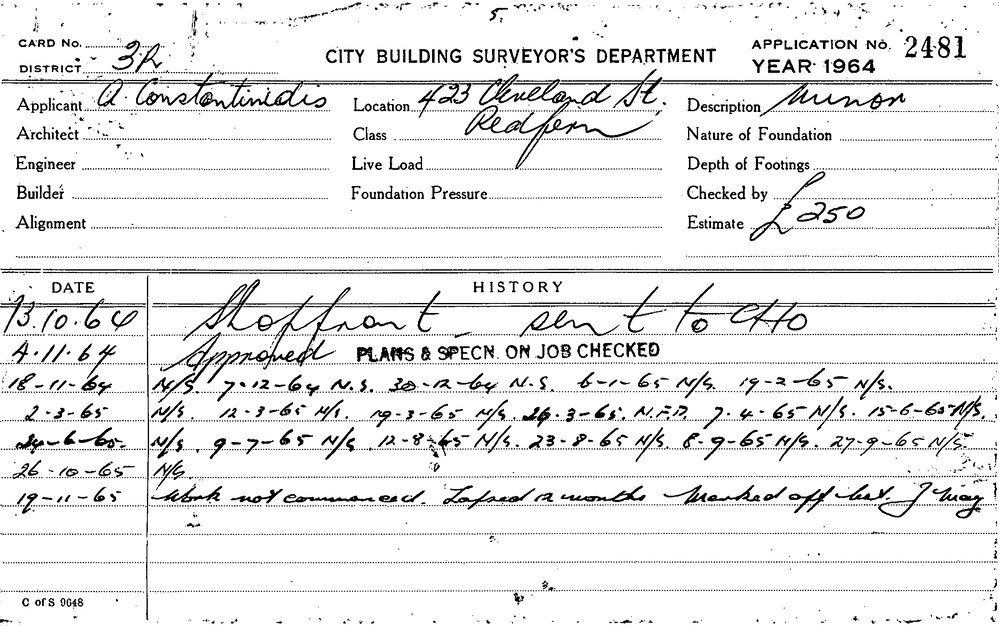 5.
CARD No.
DISTRICT 3R
CITY BUILDING SURVEYOR'S DEPARTMENT
APPLICATION No. 2481
YEAR 1964
Applicant A. Constantinidis
Location 423 Cleveland St.
Redfern
Description Minor
Architect
Class
Nature of Foundation
Engineer
Live Load
Depth of Footings
Builder
Foundation Pressure
Checked by
Alignment
Estimate £250
DATE HISTORY
13.10.64 Shopfront - sent to CHO
4.11.64 Approved PLANS & SPECN. ON JOB CHECKED
18-11-64 N/S. 7-12-64 N.S. 30-12-64 N.S. 6-1-65 N/S. 19-2-65 N/S.
2-3-65 N/S. 12-3-65 N/S. 19-3-65 N/S. 26-3-65. N.F.D. 7-4-65 N/S. 15-6-65 N/S.
24-6-65. N/S. 9-7-65 N/S. 12-8-65 N/S. 23-8-65 N/S. 8-9-65 N/S. 27-9-65 N/S.
26-10-65 N/S
19-11-65 Work not commenced. Lapsed 12 months Marked off list. J May
C of S 9648